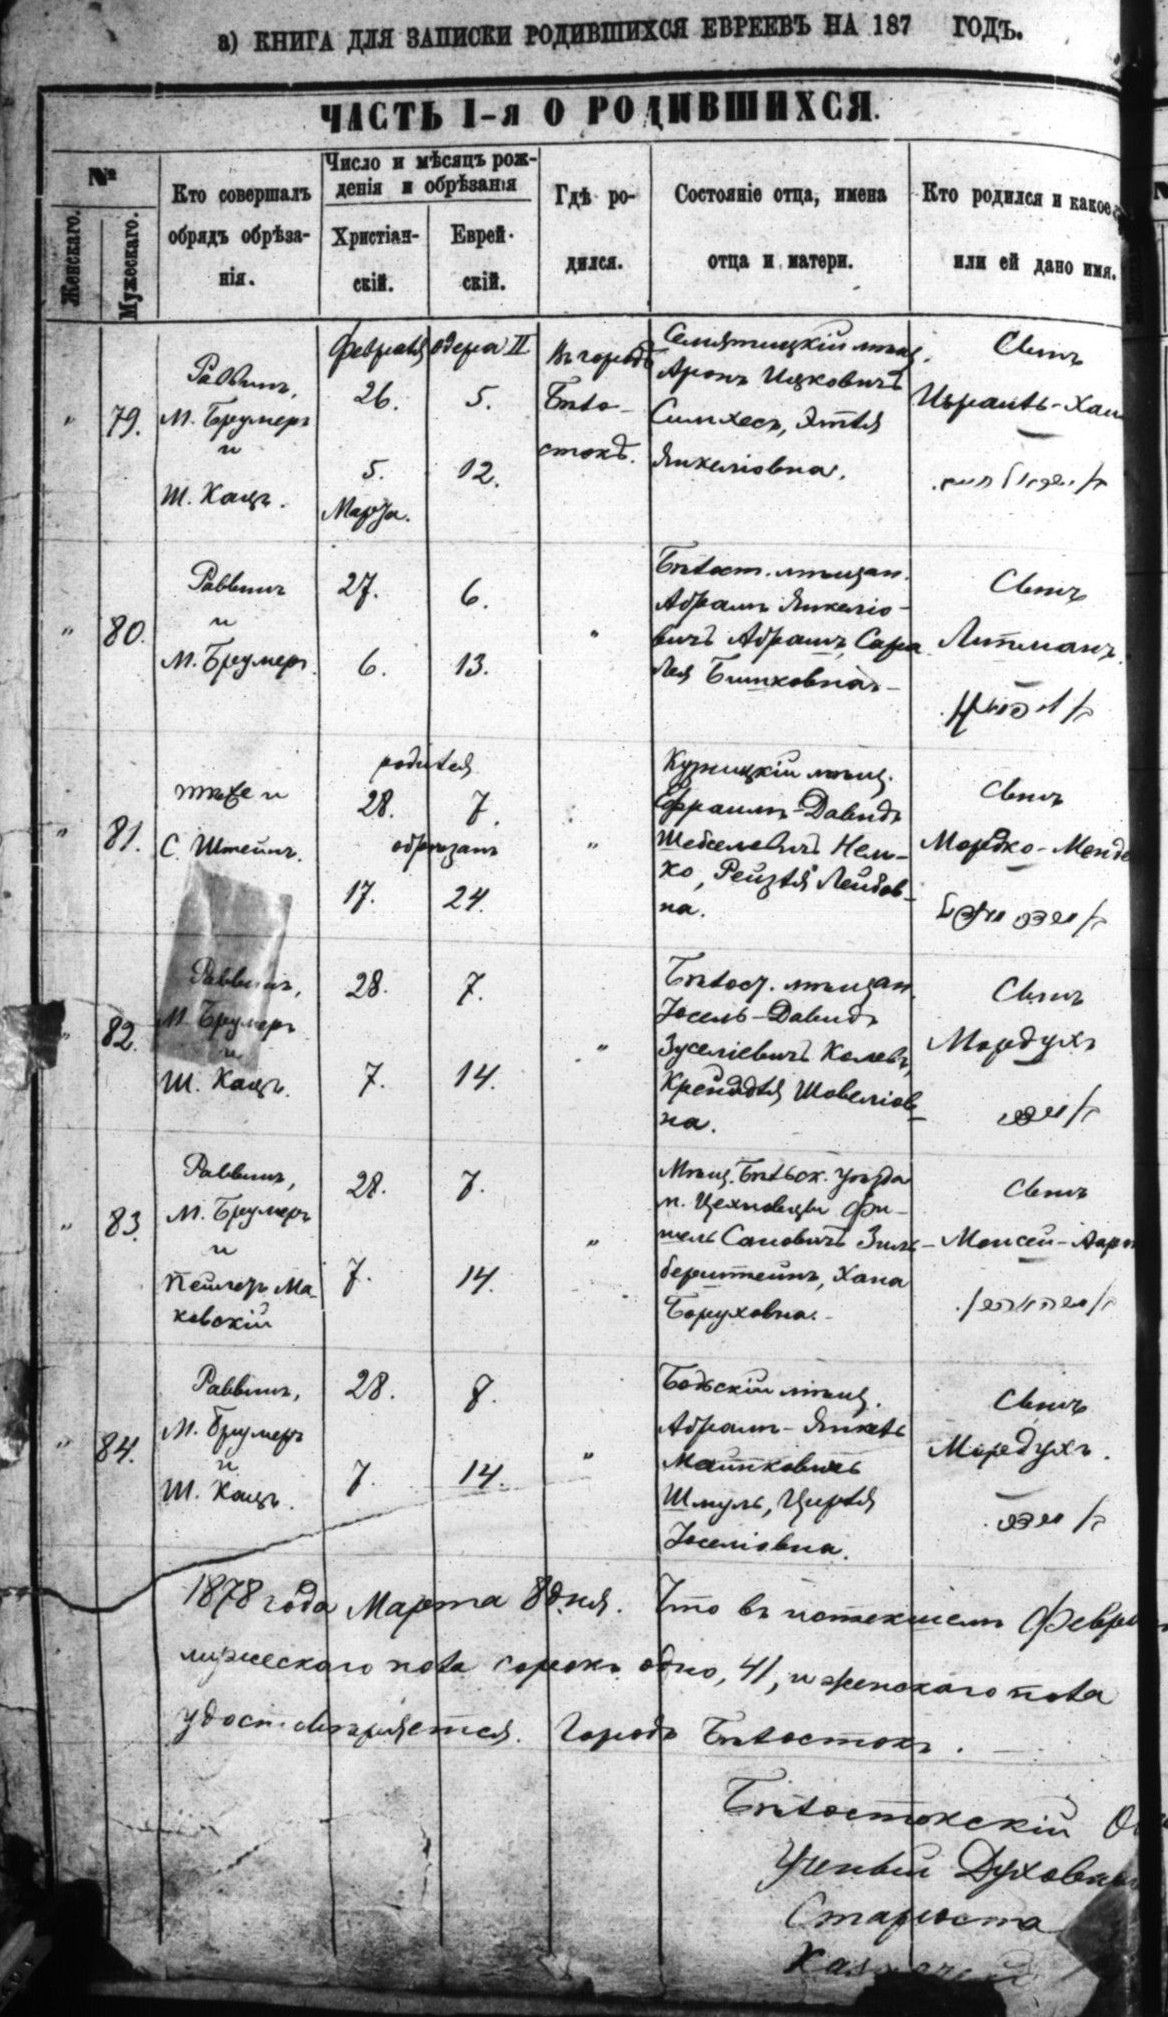 а) КНИГА ДЛЯ ЗАПИСКИ РОДИВШИХСЯ ЕВРЕЕВЪ НА 187 ГОДЪ.
ЧАСТЬ I-я О РОДИВШИХСЯ.
№
Женскаго.
Мужескаго.
Кто совершалъ
обрядъ обрѣза-
нія.
Число и мѣсяцъ рож-
денія и обрѣзанія
Христіан-
скій.
Еврей-
скій.
Гдѣ ро-
дился.
Состояніе отца, имена
отца и матери.
Кто родился и какое
или ей дано имя.
"
79.
Раввинъ,
М. Брумеръ
и
Ш. Кацъ.
Февраля
26.
5.
Марта.
Одера II
5.
12.
Въ городѣ
Бѣло-
стокѣ.
Семятицкій мѣщ.
Аронъ Ицковичъ
Симхесъ, Этля
Янкеліовна.
Сынъ
Израиль-Хаи
"
80.
Раввинъ
и
М. Брумеръ.
27.
6.
6.
13.
"
Бѣлост. мѣщан.
Абрамъ Янкеліо-
вичъ Абрамъ, Сара
Лея
Сынъ
Литманъ.
"
81.
тѣже и
С. Штейнъ.
родился
28.
7.
обрѣзанъ
17.
24.
"
Кузницкій мѣщ.
Ефраимъ-Давидъ
Шебселевичъ Нем-
ко, Рейзля Лейбов-
на.
Сынъ
Мордко-Менде
"
82.
Раввинъ,
М. Брумеръ
и
Ш. Кацъ.
28.
7.
7.
14.
"
Бѣлост. мѣщан.
Іосель-Давидъ
Зуселіевичъ
Крейндля Шовеліов-
на.
Сынъ
Мордухъ
"
83.
Раввинъ,
М. Брумеръ
и
Пейсахъ Ма-
ковскій
28.
7.
7.
14.
"
Мѣщ. Бѣльск. уѣзда
м. Цехановцы Фи-
шель Сановичъ Зиль-
берштейнъ, Хана
Боруховна.
Сынъ
Моисей-Аарон
"
84.
Раввинъ,
М. Брумеръ
и
Ш. Кацъ.
28.
7.
8.
14.
"
Бодскій мѣщ.
Абрамъ-Янкель
Шмуль, Цирля
Іоселіовна.
Сынъ
Мордухъ.
1878 года Марта 8 дня. Что въ истекшемъ Февра
мужескаго пола сорокъ одно, 41, и женскаго пола
удостовѣряется. Городъ Бѣлостокъ.
Бѣлостокскій
Ученый Духовный
Староста
Казначей